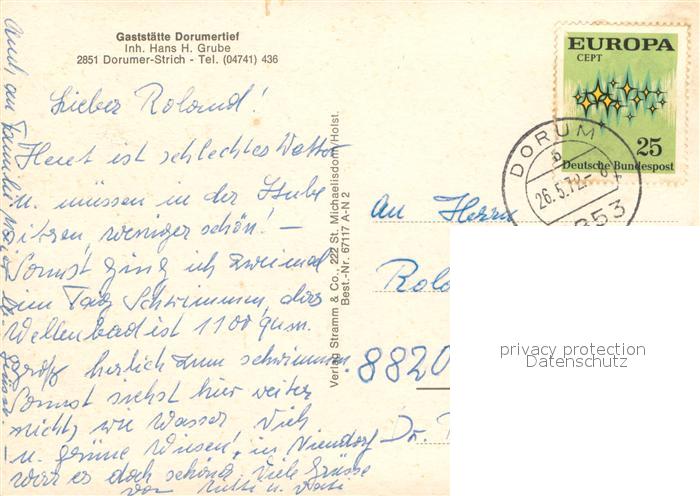 Gaststätte Dorumertief
Inh. Hans H. Grube
2851 Dorumer-Strich - Tel. (04741) 436
Lieber Roland!
Heut ist schlechtes Wetter
u. müssen in der Stube
sitzen, weniger schön! -
Sonnst ging ich zweimal
im Tag Schwimmen, das
Wellenbad ist 1100 qum.
groß herlich zum schwimmen.
Sonnst siehst hier weiter
nichts, wie Wasser, Vieh
u. grüne Wiesen, in Niendorf
war es doch schöner. Viele Grüsse
von Mutti u.
Auch an Familie
Verlag Stramm & Co., 222 St. Michaelisdonn/Holst.
Best.-Nr. 67117 A-N 2
EUROPA
CEPT
25
Deutsche Bundespost
DORUM
b
26.5.72.-
853
An Herrn
Rol
8820
Dr.
privacy protection
Datenschutz